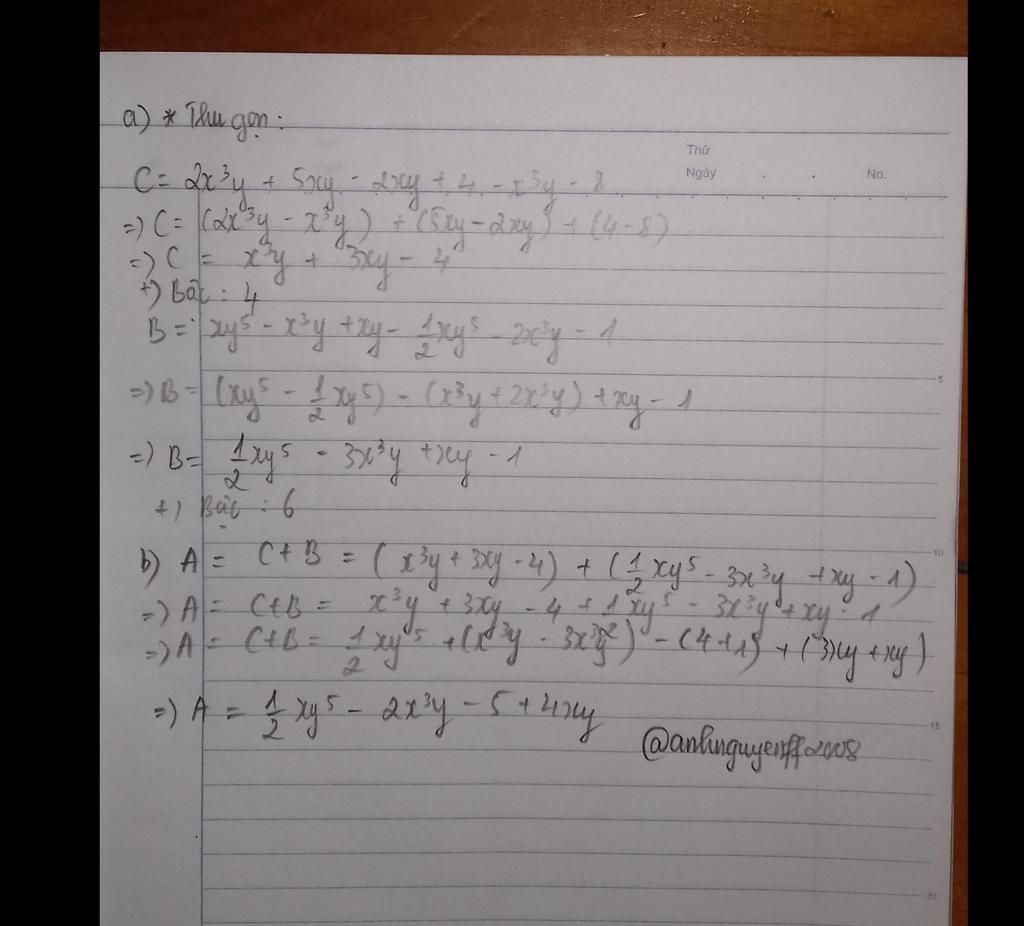 a) * Thu gọn :
Thứ
Ngày . . No.
C = 2x³y + 5xy - 2xy + 4 - x³y - 8
=) C = (2x³y - x³y) + (5xy - 2xy) + (4 - 8)
=) C = x³y + 3xy - 4
+) Bậc : 4
B = xy⁵ - x³y + xy - 1/2 xy⁵ - 2x³y - 1
5
=) B = (xy⁵ - 1/2 xy⁵) - (x³y + 2x³y) + xy - 1
=) B = 1/2 xy⁵ - 3x³y + xy - 1
+) Bậc : 6
10
b) A = C + B = (x³y + 3xy - 4) + (1/2 xy⁵ - 3x³y + xy - 1)
=) A = C + B = x³y + 3xy - 4 + 1/2 xy⁵ - 3x³y + xy - 1
=) A = C + B = 1/2 xy⁵ + (x³y - 3x³y) - (4 + 1) + (3xy + xy)
=) A = 1/2 xy⁵ - 2x³y - 5 + 4xy
15
@anhnguyenff2008
20